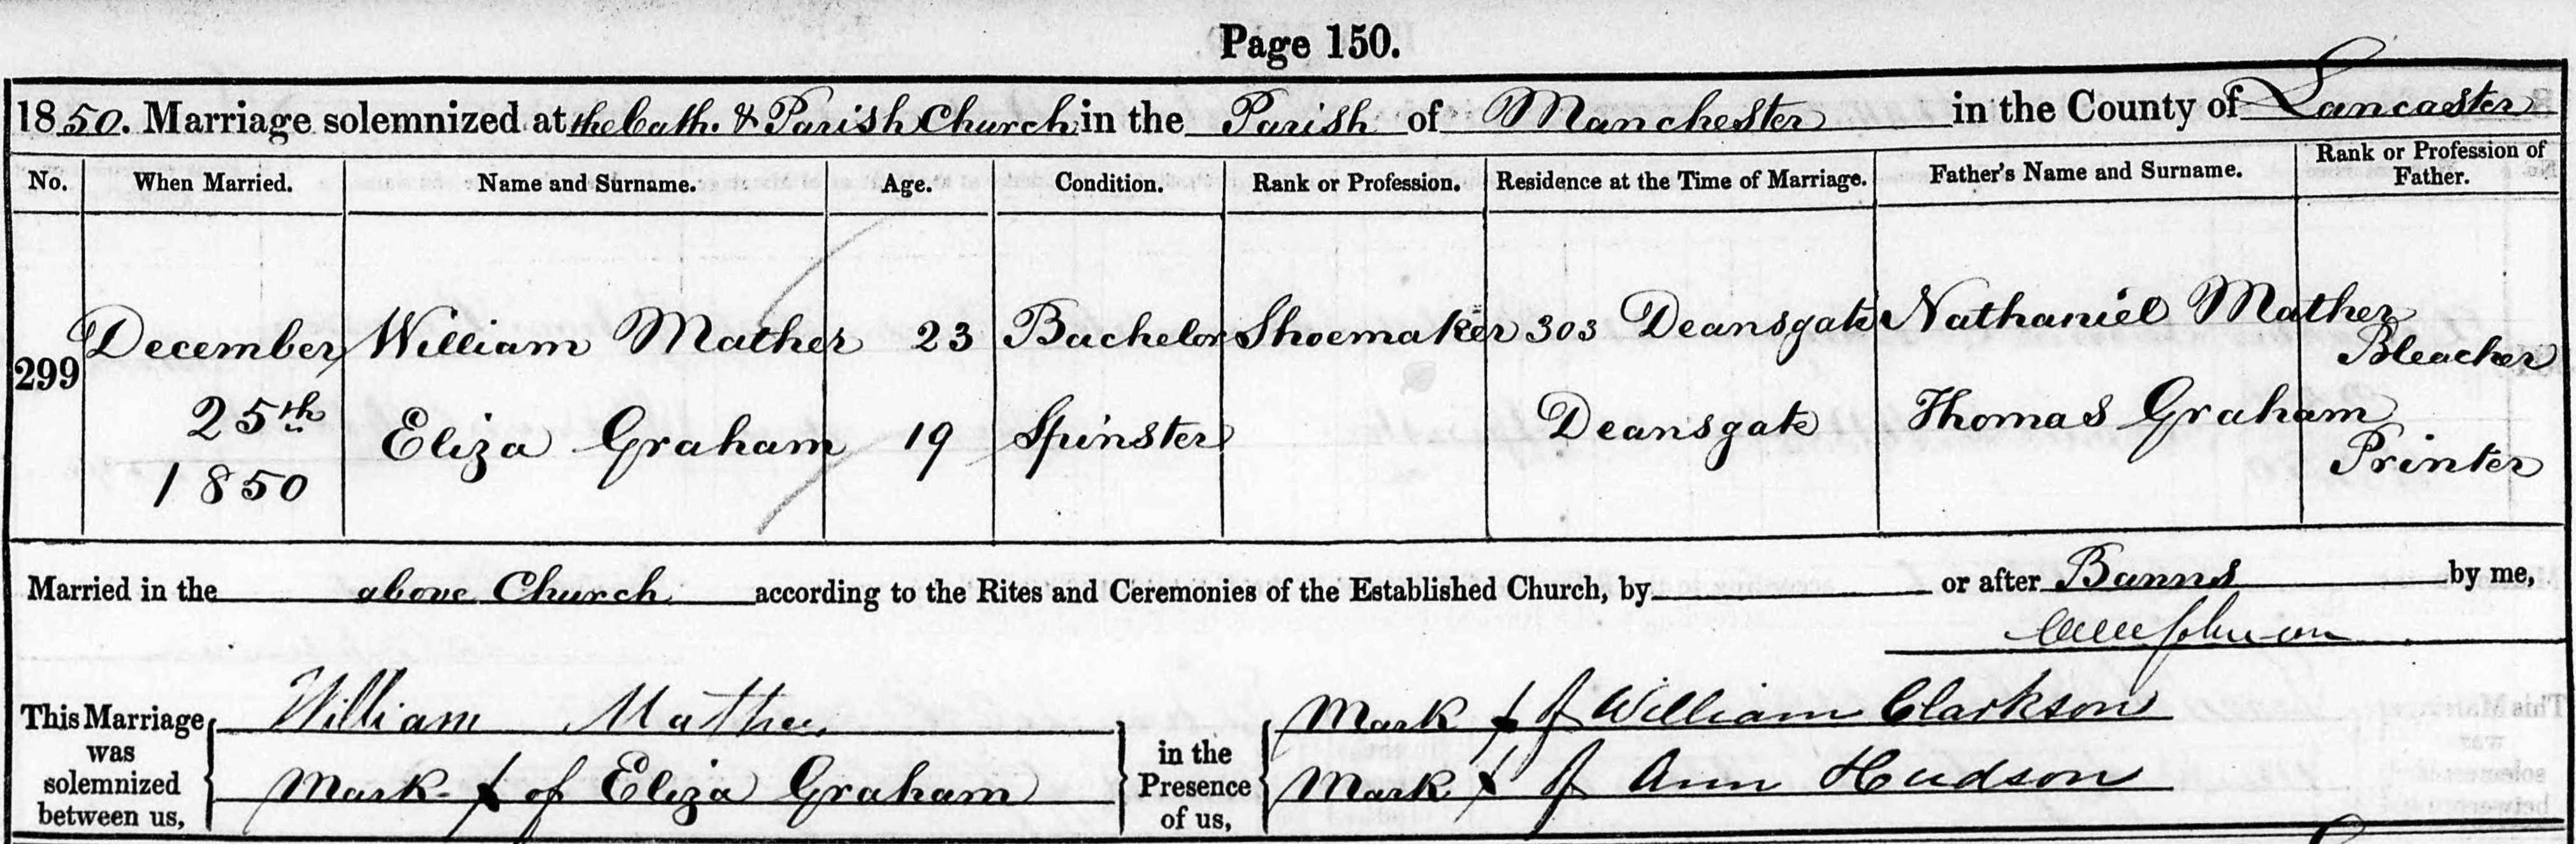 Page 150.
1850. Marriage solemnized at the Cath. & Parish Church in the Parish of Manchester in the County of Lancaster
No. When Married. Name and Surname. Age. Condition. Rank or Profession. Residence at the Time of Marriage. Father's Name and Surname. Rank or Profession of Father.
299 December 25th 1850 William Mather 23 Bachelor Shoemaker 303 Deansgate Nathaniel Mather Bleacher
Eliza Graham 19 Spinster Deansgate Thomas Graham Printer
Married in the above Church according to the Rites and Ceremonies of the Established Church, by or after Banns by me,
Johnson
This Marriage was solemnized between us, William Mather
Mark X of Eliza Graham
in the Presence of us, Mark X of William Clarkson
Mark X of Ann Hudson